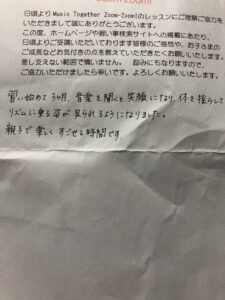 日頃より Music Together Zoom-Zoom!のレッスンにご理解ご協力を
いただきまして誠にありがとうございます。
この度、ホームページや習い事検索サイトへの掲載にあたり、
日頃よりご受講いただいております皆様のご感想や、お子さまの
ご成長などお気付きの点を教えていただきたくお願いいたします。
差し支えない範囲で構いません。 励みにもなりますので、
ご協力いただけましたら幸いです。よろしくお願いいたします。
習い始めて3ヶ月、音楽を聞くと笑顔になり、体を揺らして
リズムに乗る姿が見られるようになりました。
親子で楽しくすごせる時間です。